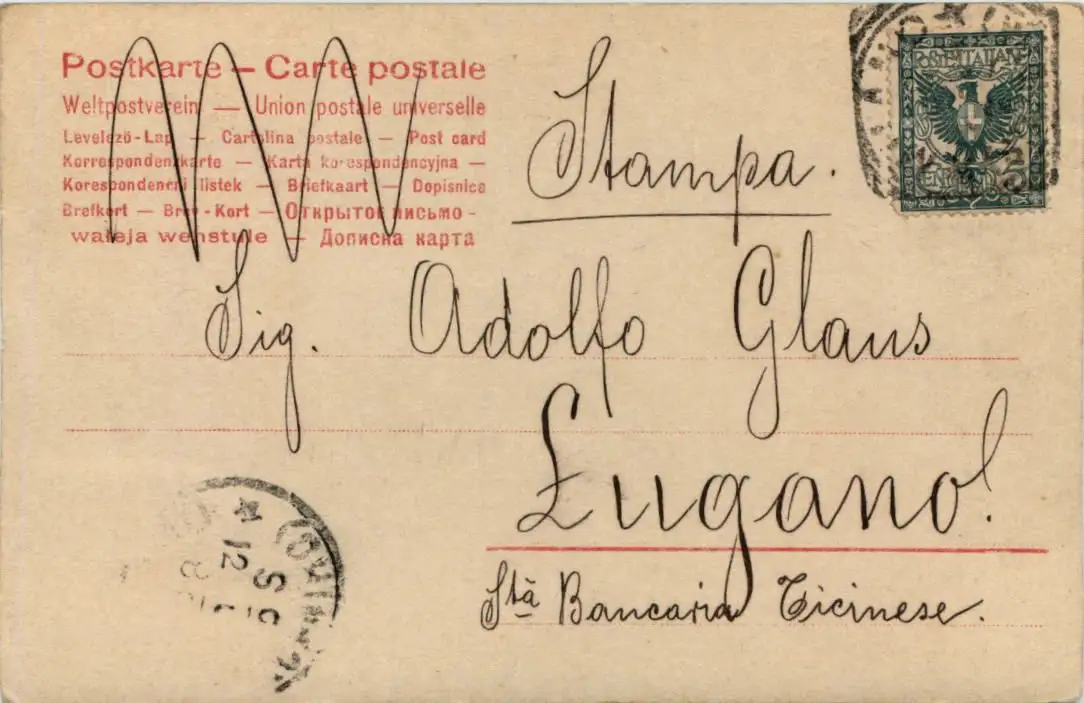 Postkarte – Carte postale
Weltpostverein — Union postale universelle
Levelező-Lap — Cartolina postale — Post card
Korrespondenzkarte — Karta korespondencyjna —
Korespondencni listek — Briefkaart — Dopisnica
Brefkort — Brev-Kort — Открытое письмо -
wałeja wenstule — Дописна карта
Stampa.
POSTE ITALIANE
Sig. Adolfo Glaus
Lugano!
Stà Bancaria Ticinese.
12